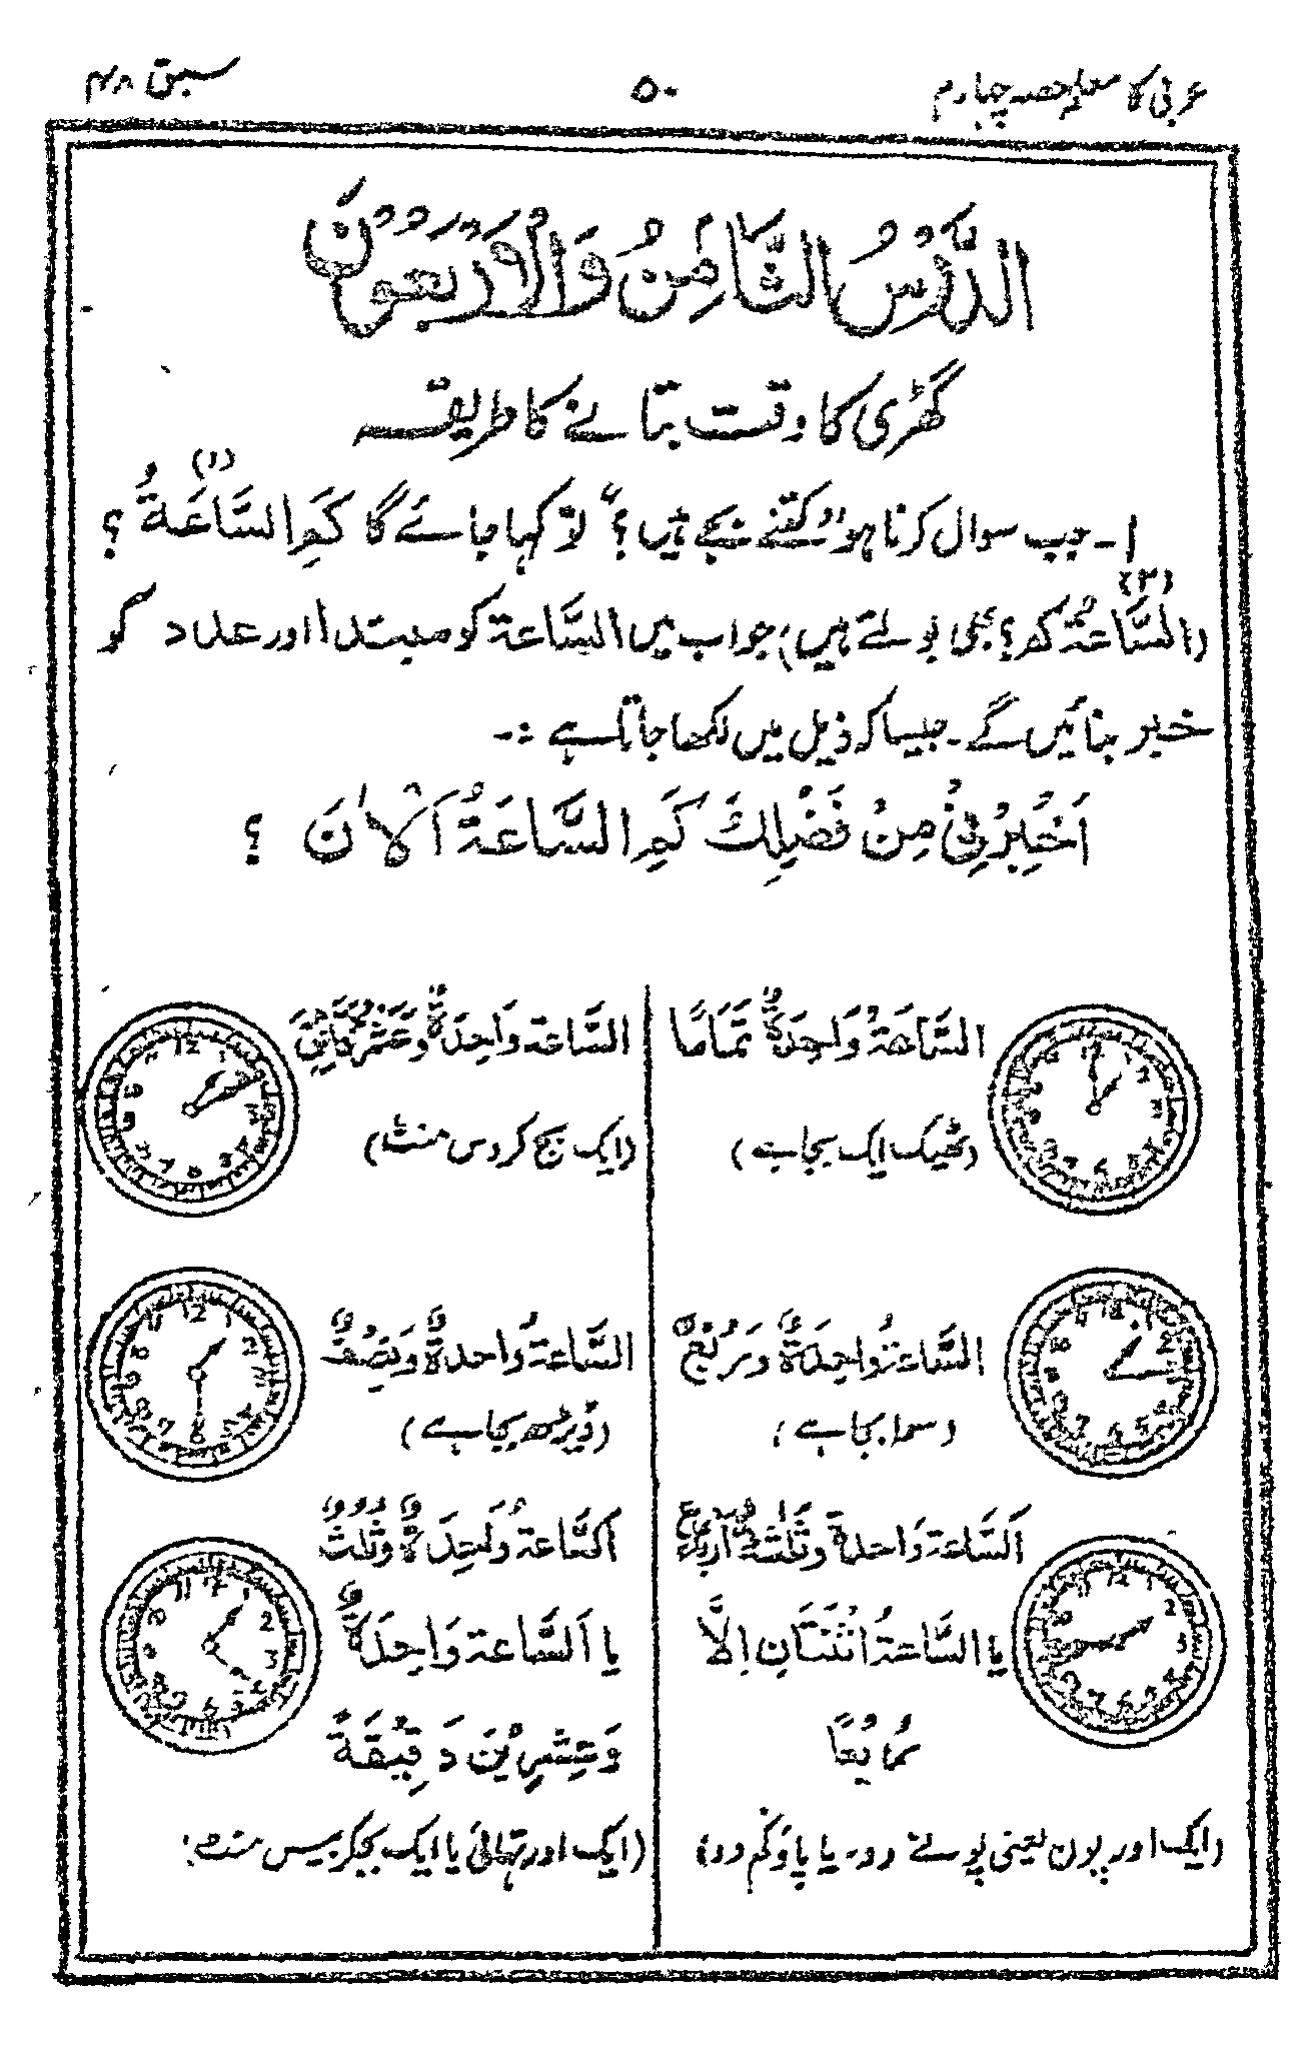 عربی کا معلم حصہ چہارم
۵۰
سبق ۴۸
الدَّرْسُ الثَّامِنُ وَالْاَرْبَعُوْنَ
گھڑی کا وقت بتانے کا طریقہ
۱- جب سوال کرنا ہو "کتنے بجے ہیں؟" تو کہا جائے گا كَمِ السَّاعَةُ (۱) ؟
(السَّاعَةُ كم؟ (۲) بھی بولتے ہیں) جواب میں السَّاعة کو مبتدا اور عدد کو
خبر بنائیں گے۔ جیسا کہ ذیل میں لکھا جاتا ہے :-
اَخْبِرْنِيْ مِنْ فَضْلِكَ كَمِ السَّاعَةُ اَلْاٰنَ ؟
السَّاعَةُ وَاحِدَةٌ تَمَامًا
(ٹھیک ایک بجا ہے)
السَّاعة وَاحِدَةٌ وَعَشْرُ دَقَائِقَ
(ایک بج کر دس منٹ)
السَّاعةُ واحِدَةٌ وَرُبْعٌ
(سوا بجا ہے)
السَّاعةُ واحدةٌ ونِصْفٌ
(ڈیڑھ بجا ہے)
اَلسَّاعة وَاحدة وثَلٰثةُ اَرْبَاعٍ
یا السَّاعةُ اثْنَتَانِ اِلَّا
رُبْعًا
(ایک اور پون یعنی پونے دو۔ یا پاؤ کم دو)
اَلسَّاعةُ وَاحِدَةٌ وثُلُثٌ
یا اَلسَّاعة وَاحِدَةٌ
وَعِشْرِيْنَ دَقِيْقَةً
(ایک اور تہائی یا ایک بجکر بیس منٹ)
12 1 2 3 4 5 6 7 8 9 10 11